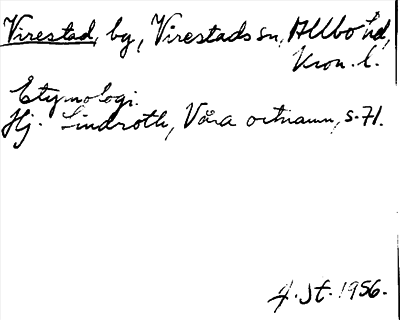 Virestad, by, Virestads sn, Allbo hd,
Kron. l.
Etymologi.
Hj. Lindroth, Våra ortnamn, s. 71.
J. St. 1956.